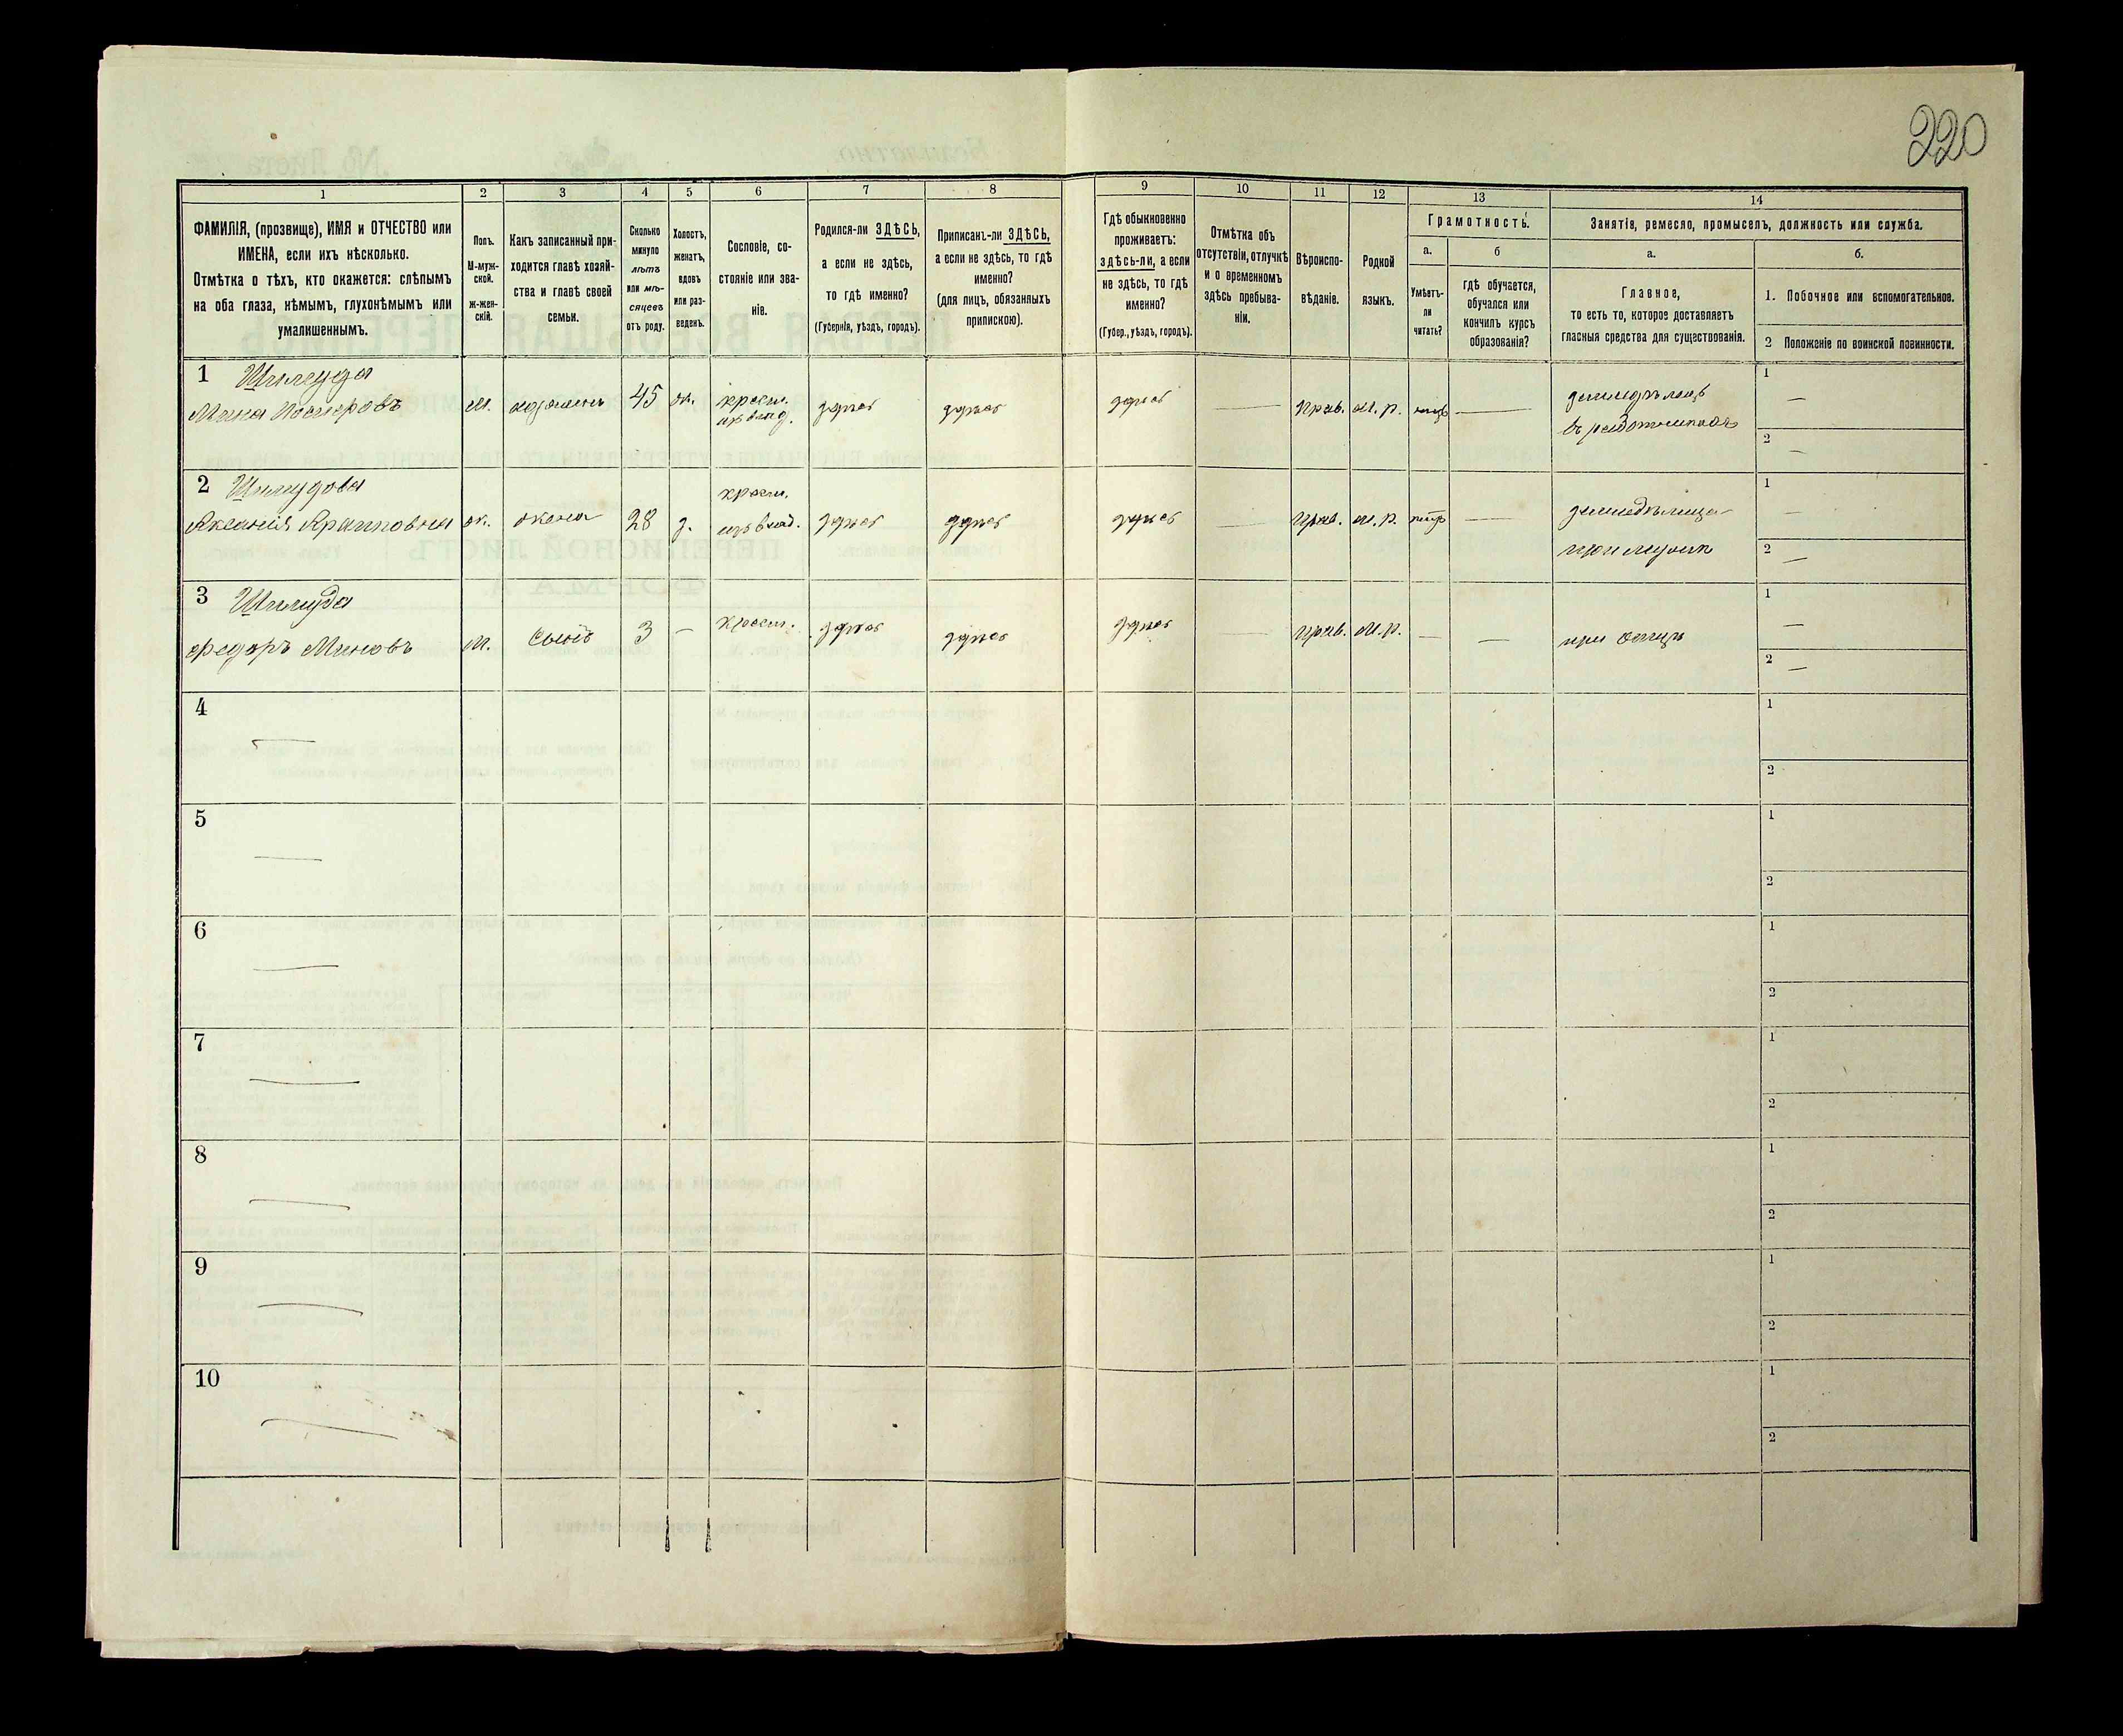 220
1
2
3
4
5
6
7
8
9
10
11
12
13
14
ФАМИЛІЯ, (прозвище), ИМЯ и ОТЧЕСТВО или
ИМЕНА, если ихъ нѣсколько.
Отмѣтка о тѣхъ, кто окажется: слѣпымъ
на оба глаза, нѣмымъ, глухонѣмымъ или
умалишеннымъ.
Полъ.
М-муж-
ской.
Ж-жен-
скій.
Какъ записанный при-
ходится главѣ хозяй-
ства и главѣ своей
семьи.
Сколько
минуло
лѣтъ
или мѣ-
сяцевъ
отъ роду.
Холостъ,
женатъ,
вдовъ
или раз-
веденъ.
Сословіе, со-
стояніе или зва-
ніе.
Родился-ли ЗДѢСЬ,
а если не здѣсь,
то гдѣ именно?
(Губернія, уѣздъ, городъ).
Приписанъ-ли ЗДѢСЬ,
а если не здѣсь, то гдѣ
именно?
(для лицъ, обязанныхъ
припискою).
Гдѣ обыкновенно
проживаетъ:
здѣсь-ли, а если
не здѣсь, то гдѣ
именно?
(Губер., уѣздъ, городъ).
Отмѣтка объ
отсутствіи, отлучкѣ
и о временномъ
здѣсь пребыва-
ніи.
Вѣроиспо-
вѣданіе.
Родной
языкъ.
Грамотность.
а.
Умѣетъ-
ли
читать?
б
гдѣ обучается,
обучался или
кончилъ курсъ
образованія?
Занятія, ремесло, промыселъ, должность или служба.
а.
Главное,
то есть то, которое доставляетъ
гласныя средства для существованія.
б.
1. Побочное или вспомогательное.
2 Положеніе по воинской повинности.
1
Мина
м.
45
ж.
крест.
здѣсь
здѣсь
здѣсь
—
прав.
м.р.
—
1 —
2 —
2
Аксанія
ж.
жена
28
з.
крест.
здѣсь
здѣсь
здѣсь
—
прав.
м.р.
—
при мужѣ
1 —
2 —
3
Федоръ Миновъ
м.
сынъ
3
—
крест.
здѣсь
здѣсь
здѣсь
—
прав.
м.р.
—
—
при отцѣ
1 —
2 —
4 —
1
2
5 —
1
2
6 —
1
2
7 —
1
2
8 —
1
2
9 —
1
2
10 —
1
2